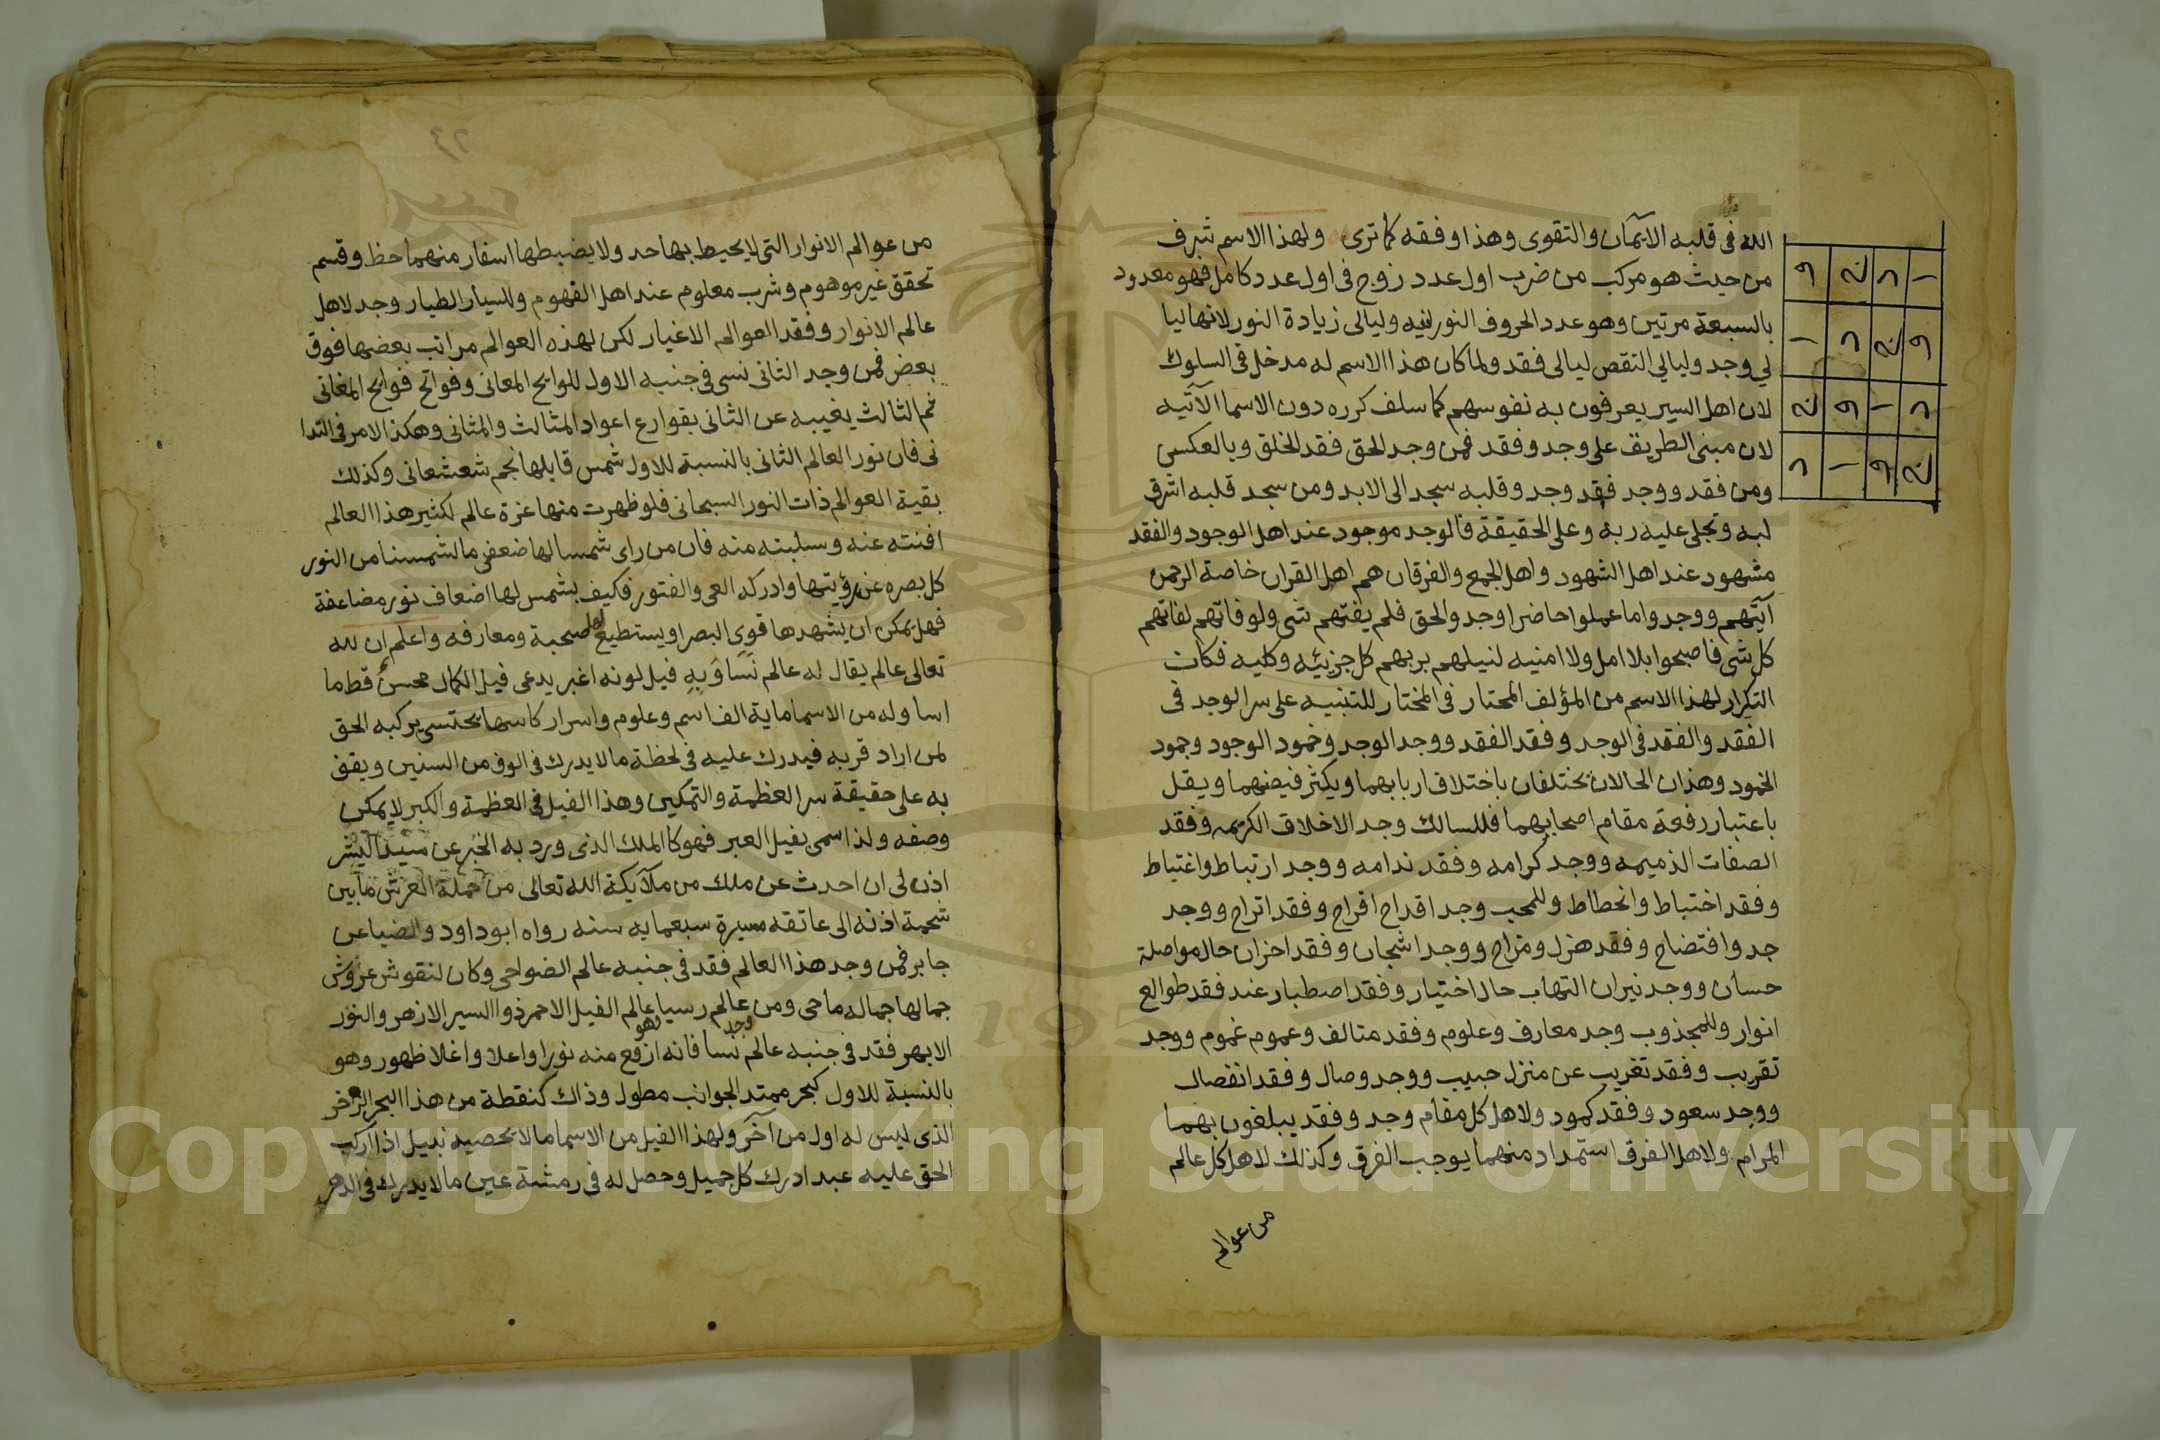 الله فى قلبه الايمان والتقوى وهذا وفقه كما ترى ولهذا الاسم شرف
من حيث هو مركب من ضرب اول عدد زوج فى اول عدد كامل فهو معدود
بالسبعة مرتين وهو عدد الحروف النورانيه وليالى زيادة النور لانها ليا
لي وجد وليالي النقص ليالى فقد ولما كان هذا الاسم له مدخل فى السلوك
لان اهل السير يعرفون به نفوسهم كما سلف كرره دون الاسما الآتيه
لان مبنى الطريق على وجد وفقد فمن وجد الحق فقد الخلق وبالعكس
ومن فقد ووجد فقد وجد وقلبه سجد الى الابد ومن سجد قلبه اشرق
لبه وتجلى عليه ربه وعلى الحقيقة فالوجد موجود عند اهل الوجود والفقد
مشهود عند اهل الشهود واهل الجمع والفرقان هم اهل القران خاصة الرحمن
آيتهم ووجدوا ما عملوا حاضرا وجد والحق فلم يفتهم شى ولو فاتهم لفاتهم
كل شى فاصبحوا بلا امل ولا امنيه لنيلهم بربهم كل جزئيه وكليه فكان
التكرار لهذا الاسم من المؤلف المختار فى المختار للتنبيه على سر الوجد فى
الفقد والفقد فى الوجد وفقد الفقد ووجد الوجد وخمود الوجود وجمود
الخمود وهذان الحالان يختلفان باختلاف اربابهما ويكثر فيضهما ويقل
باعتبار رفعة مقام اصحابهما فللسالك وجد الاخلاق الكريمه وفقد
الصفات الذميمه ووجد كرامه وفقد ندامه ووجد ارتباط واغتباط
وفقد اختباط وانحطاط وللمحب وجد اقداح افراح وفقد اتراح ووجد
جد وافتضاح وفقد هزل ومزاح ووجد اشجان وفقد احزان حال مواصلة
حسان ووجد نيران التهاب حال اختيار وفقد اصطبار عند فقد طوالع
انوار وللمجذوب وجد معارف وعلوم وفقد متالف وعموم غموم ووجد
تقريب وفقد تغريب عن منزل حبيب ووجد وصال وفقد انفصال
ووجد سعود وفقد كمود ولاهل كل مقام وجد وفقد يبلغون بهما
المرام ولاهل الفرق استمداد منهما يوجب الفرق وكذلك لاهل كل عالم
من عوالم
من عوالم الانوار التى لا يحيط بها حد ولا يضبطها اسفار منهما حظ وقسم
تحقق غير موهوم وشرب معلوم عند اهل الفهوم وللسيار الطيار وجد لاهل
عالم الانوار وفقد العوالم الاغيار لكن لهذه العوالم مراتب بعضها فوق
بعض فمن وجد الثانى نسى فى جنبه الاول للوايح المعانى وفواتح فوايح المغانى
ثم الثالث يغيبه عن الثانى بقوارع اعواد المثالث والمثانى وهكذا الامر فى التدا
نى فان نور العالم الثانى بالنسبة للاول شمس قابلها نجم شعشعانى وكذلك
بقية العوالم ذات النور السبحانى فلو ظهرت منها غزة عالم لكثير هذا العالم
افنته عنه وسلبته منه فان من راى شمسا لها ضعفى ما لشمسنا من النور
كل بصره عن رؤيتها وادركه العى والفتور فكيف بشمس لها اضعاف نور مضاعفة
فهل يمكن ان يشهدها قوى البصر او يستطيع لها صحبة ومعارفه واعلم ان لله
تعالى عالم يقال له عالم نساوَيهِ فيل لونه اغبر يدعى فيل الكمال محسن قط ما
اسا وله من الاسما ماية الف اسم وعلوم واسرار كاسها يحتسى يركبه الحق
لمن اراد قربه فيدرك عليه فى لحظة ما لا يدرك فى الوف من السنين ويقف
به على حقيقة سر العظمة والتمكين وهذا الفيل فى العظمة والكبر لا يمكن
وصفه ولذا سمى بفيل العبر فهو كالملك الذى ورد به الخبر عن سيد البشر
اذن لى ان احدث عن ملك من ملآيكة الله تعالى من حملة العرش مابين
شحمة اذنه الى عاتقه مسيرة سبعمايه سنه رواه ابو داود والضيا عن
جابر فمن وجد هذا العالم فقد فى جنبه عالم الضواحى وكان لنقوش عروش
جمالها جماله ماحى ومن عالم رسيا عالم الفيل الاحمر ذو السير الازهر والنور
الابهر فقد فى جنبه عالم نسا فانه ارفع منه نورا واعلا واغلا ظهور وهو
بالنسبة للاول كبحر ممتد الجوانب مطول وذاك كنقطة من هذا البحر الزاخر
الذى ليس له اول من آخر ولهذا الفيل من الاسما ما لا يحصيه نبيل اذا اركب
الحق عليه عبد ادرك كل جميل وحصل له فى رمشة عين ما لا يدرك فى الدهر
Copyright © King Saud University